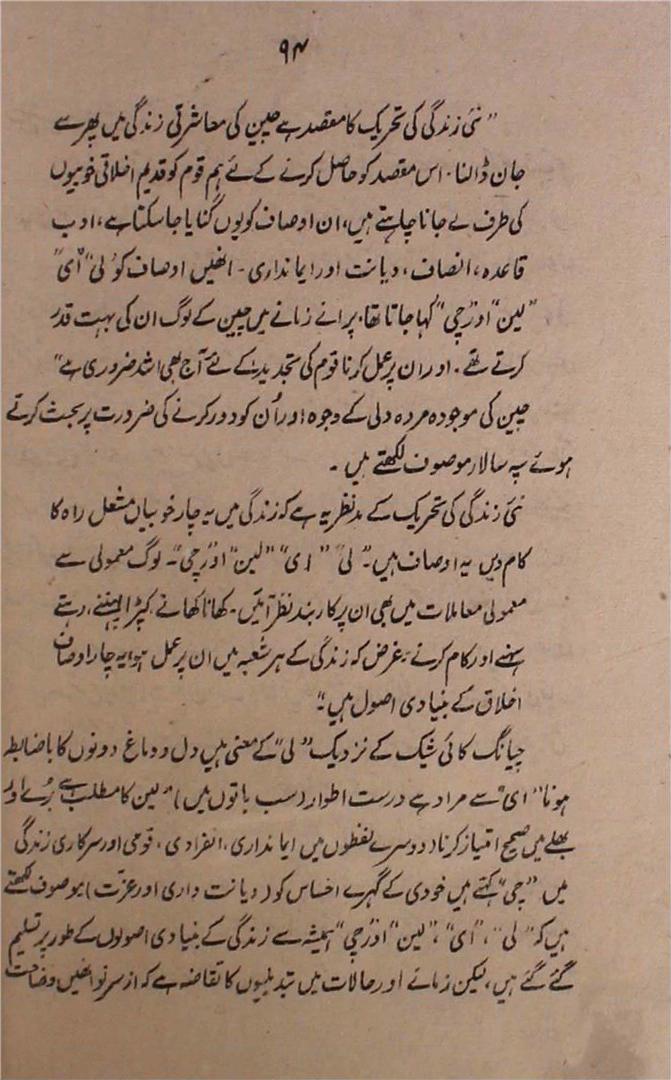 ۹۴
"نئی زندگی کی تحریک کا مقصد ہے چین کی معاشرتی زندگی میں پھر سے
جان ڈالنا۔ اس مقصد کو حاصل کرنے کے لئے ہم قوم کو قدیم اخلاقی خوبیوں
کی طرف لے جانا چاہتے ہیں، ان اوصاف کو یوں گنایا جا سکتا ہے، ادب
قاعدہ، انصاف، دیانت اور ایمانداری۔ انھیں اوصاف کو "لی" "ای"
"لین" اور "چی" کہا جاتا تھا۔ پرانے زمانے میں چین کے لوگ ان کی بہت قدر
کرتے تھے۔ اور ان پر عمل کرنا قوم کی تجدید کے لئے آج بھی اشد ضروری ہے"
چین کی موجودہ مردہ دلی کے وجوہ اور اُن کو دور کرنے کی ضرورت پر بحث کرتے
ہوئے سپہ سالار موصوف لکھتے ہیں۔
نئی زندگی کی تحریک کے مدنظر یہ ہے کہ زندگی میں یہ چار خوبیاں مشعل راہ کا
کام دیں یہ اوصاف ہیں۔ "لی" "ای" "لین" اور "چی"۔ لوگ معمولی سے
معمولی معاملات میں بھی ان پر کاربند نظر آئیں۔ کھانا کھانے، کپڑا پہننے، رہنے
سہنے اور کام کرنے، غرض کہ زندگی کے ہر شعبہ میں ان پر عمل ہو۔ یہ چار اوصاف
اخلاق کے بنیادی اصول ہیں۔"
چیانگ کائی شیک کے نزدیک "لی" کے معنی ہیں دل و دماغ دونوں کا باضابطہ
ہونا "ای" سے مراد ہے درست اطوار (سب باتوں میں) "لین کا مطلب ہے بُرے اور
بھلے میں صحیح امتیاز کرنا (دوسرے لفظوں میں ایمانداری، انفرادی، قومی اور سرکاری زندگی
میں "چی" کہتے ہیں خودی کے گہرے احساس کو (دیانت داری اور عزت) موصوف لکھتے
ہیں کہ "لی"، "ای"، "لین" اور "چی" ہمیشہ سے زندگی کے بنیادی اصولوں کے طور پر تسلیم
کئے گئے ہیں، لیکن زمانے اور حالات میں تبدیلیوں کا تقاضہ ہے کہ از سر نو انھیں وضاحت